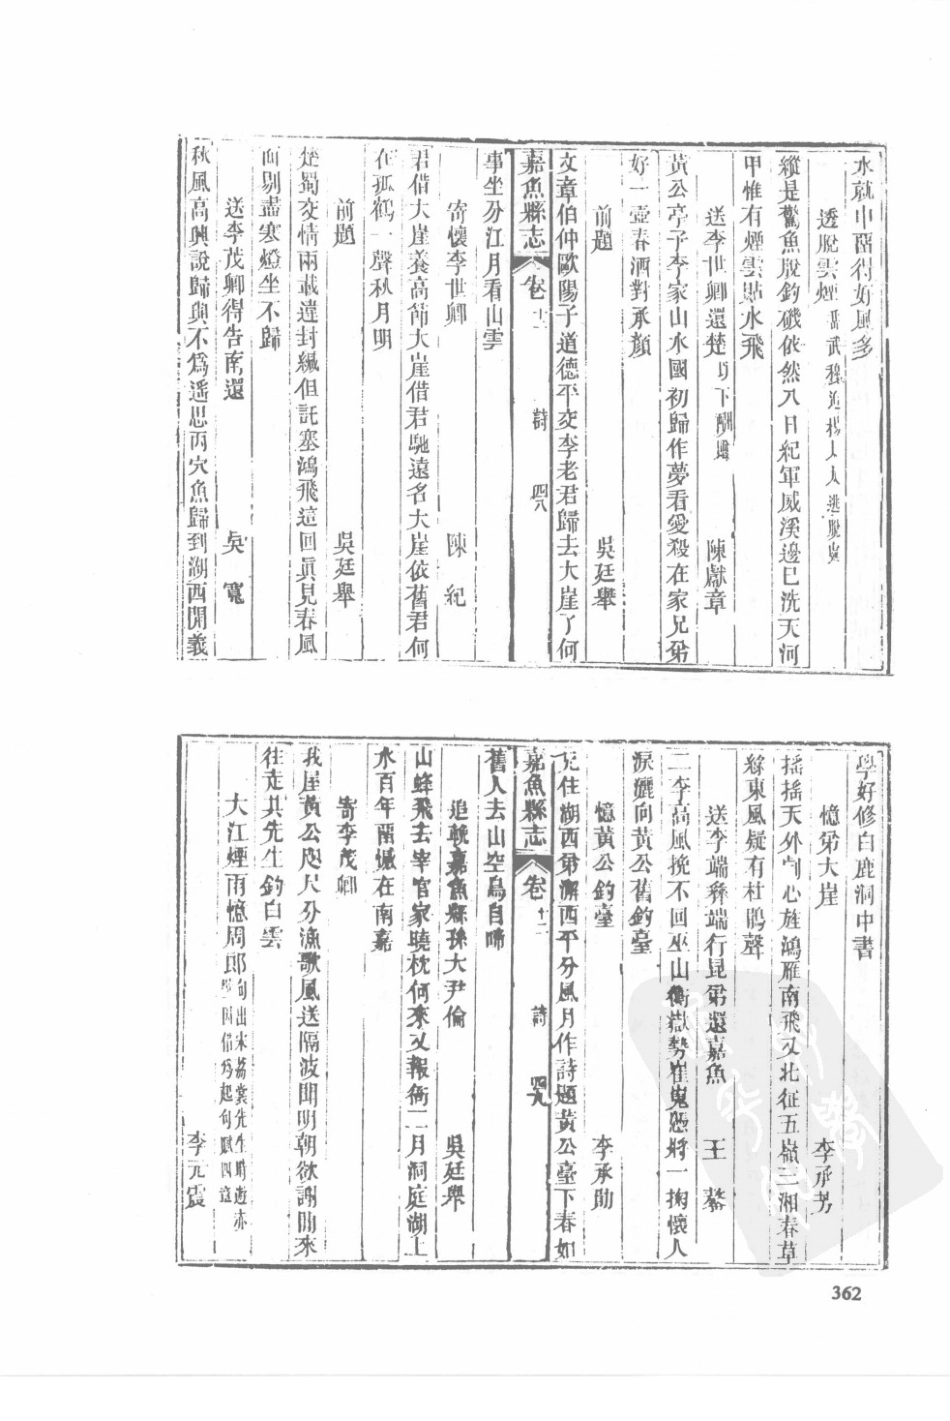 水就中酣得好風多
透脫雲煙岳武穆追楊人逃脫
縱是驚魚脫釣磯依然八日紀軍威溪邊巳洗天河
甲惟有煙雲貼水飛
送李世卿還楚以下酬 陳獻章
黃公亭子李家山水國初歸作夢看愛殺在家兄弟
好一壺春酒對承顏
前題 吳廷舉
文章伯仲歐陽子道德平交李老君歸去大崖了何
嘉魚縣志 卷十二 詩 四八
事坐分江月看山雲
寄懷李世卿 陳紀
君借大崖養高節大崖借君馳遠名大崖依舊君何
在孤鶴一聲秋月明
前題 吳廷舉
楚蜀交情兩載違封緘但託塞鴻飛這回眞見春風
面剔盡寒燈坐不歸
送李茂卿得告南還 吳寬
秋風高興說歸與不爲遥思丙穴魚歸到湖西開義
學好修白鹿洞中書
憶弟大崖 李承芳
搖搖天外心旌鴻雁南飛又北征五嶺三湘春草
綠東風疑有杜鵑聲
送李端彝端行昆弟還嘉魚 王鏊
二李高風挽不回巫山衡嶽勢崔嵬愿將一掬懷人
淚灑向黃公舊釣臺
憶黃公釣臺 李承勛
兄住湖西弟澥西平分風月作詩題黃公臺下春如
嘉魚縣志 卷十二 詩 四九
舊人去山空鳥自啼
追輓嘉魚縣孫大尹倫 吳廷舉
山蜂飛去宰官家曉枕何來又報衙二月洞庭湖上
水百年酣憾在南嘉
寄李茂卿
我崖黃公咫尺分漁歌風送隔波聞明朝欲謝閒來
往走共先生釣白雲
大江煙雨憶周郎句出宋荔裳先生因借爲起句賦四章
李元震
362